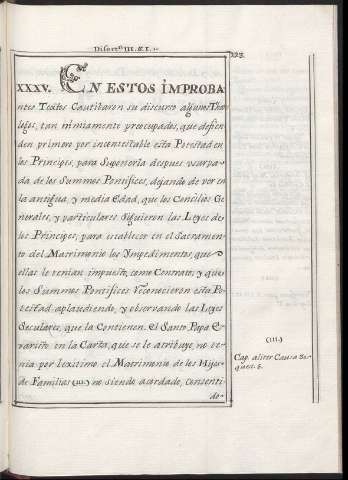 Disert.ⁿ III. §. I.
123.
XXXV. EN ESTOS IMPROBA
ntes Textos Cautibaron su discurso algunos Theo
logos, tan nimiamente preocupados, que defien
den primero por incontestable esta Potestad en
los Principes, para Suponerla despues usurpa
da de los Summos Pontifices, dejando de ver en
la antigua, y media Edad, que los Concilios Ge
nerales, y particulares Siguieron las Leyes de
los Principes, para establecer en el Sacramen
to del Matrimonio los Impedimentos, que
ellas le tenian impuesto, como Contrato; y que
los Summos Pontifices Reconocieron esta Po
testad aplaudiendo, y observando las Leyes
Seculares, que la Contienen. el Santo Papa E
varisto en la Carta, que se le atribuje, no te
nia por lexitimo el Matrimonio de los Hijos
de Familias (111.) no siendo acordado, consenti
do
(111.)
Cap. aliter Causa 30.
quest. 5.